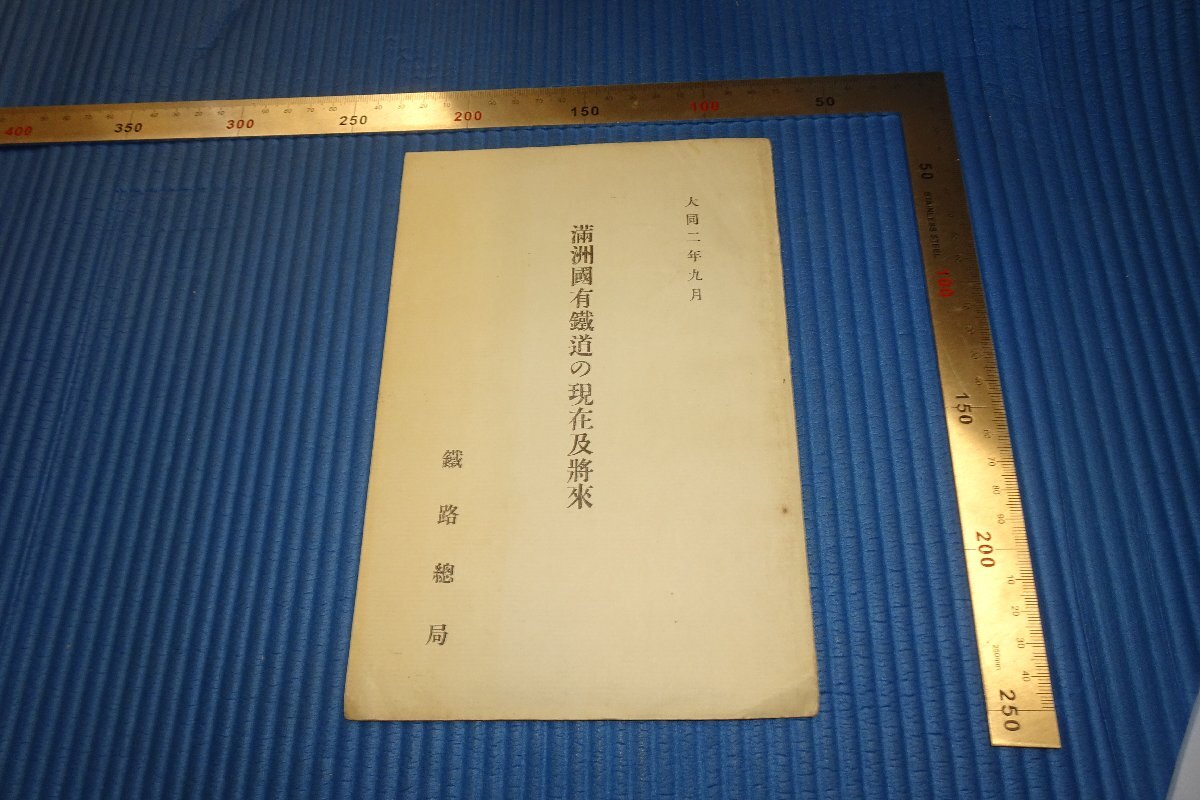 大同二年九月
滿洲國有鐵道の現在及將來
鐵路總局
400 350 300 250 200 150 100 50
50 100 150 200 250
STAINLESS STEEL